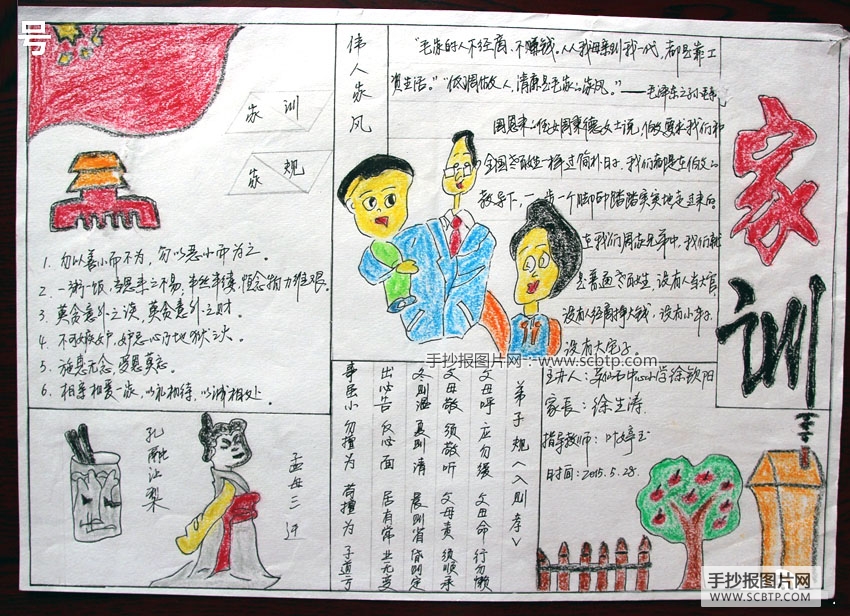 号
家训
家规
1. 勿以善小而不为，勿以恶小而为之。
2. 一粥一饭，当思来之不易，半丝半缕，恒念物力维艰。
3. 莫贪意外之财，莫
4. 不可嫉妒，妒忌心乃地狱之火。
5. 施惠无念，受恩莫忘。
6. 相亲相爱一族，以礼相待，以诚相处。
孔融让梨
孟母三迁
伟人家风
“毛家的人不经商、不赚钱。从我母亲到我一代，都是靠工
资生活。”“低调做人，清廉是毛家的家风。”——毛泽东之孙
周恩来的侄女周秉德女士说，伯父要求我们和
全国老百姓一样过简朴日子。我们都是在伯父的
教导下，一步一个脚印踏踏实实地走过来的。
在我们周家兄弟中，我们就
是普通老百姓，没有人当大官
没有人经商挣大钱，没有小车子，
没有大宅子。
家训
手抄报图片网：www.scbtp.com
弟子规〈入则孝〉
父母呼 应勿缓 父母命 行勿懒
父母教 须敬听 父母责 须顺承
冬则温 夏则凊 晨则省 昏则定
出必告 反必面 居有常 业无变
事虽小 勿擅为 苟擅为 子道亏
主办人：中心小学徐欽阳
家长：徐生涛
指导教师：叶婷玉
时间：2015.5.28.
手抄报图片网
WWW.SCBTP.COM